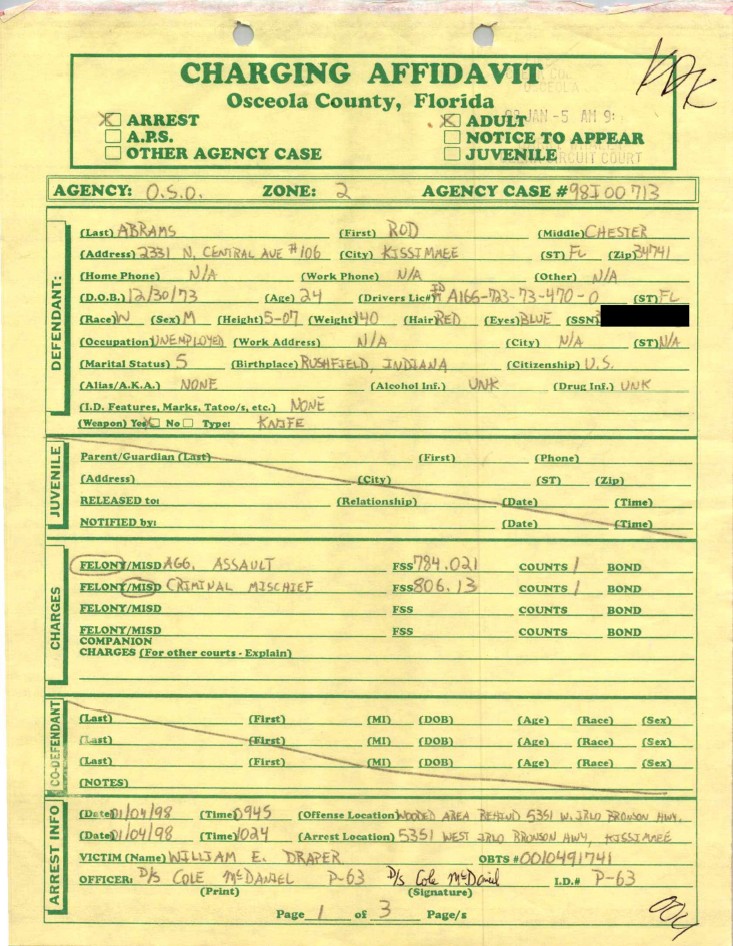 CHARGING AFFIDAVIT
Osceola County, Florida
ARREST ADULT
A.P.S. NOTICE TO APPEAR
OTHER AGENCY CASE JUVENILE
JAN -5 AM 9:
CIRCUIT COURT
AGENCY: O.S.O. ZONE: 2 AGENCY CASE # 98I00713
DEFENDANT:
(Last) ABRAMS (First) ROD (Middle) CHESTER
(Address) 2331 N. CENTRAL AVE #106 (City) KISSIMMEE (ST) FL (Zip) 34741
(Home Phone) N/A (Work Phone) N/A (Other) N/A
(D.O.B.) 12/30/73 (Age) 24 (Drivers Lic#) ID# A166-723-73-470-0 (ST) FL
(Race) W (Sex) M (Height) 5-07 (Weight) 140 (Hair) RED (Eyes) BLUE (SSN)
(Occupation) UNEMPLOYED (Work Address) N/A (City) N/A (ST) N/A
(Marital Status) S (Birthplace) RUSHFIELD, INDIANA (Citizenship) U.S.
(Alias/A.K.A.) NONE (Alcohol Inf.) UNK (Drug Inf.) UNK
(I.D. Features, Marks, Tatoo/s, etc.) NONE
(Weapon) Yes No Type: KNIFE
JUVENILE
Parent/Guardian (Last) (First) (Phone)
(Address) (City) (ST) (Zip)
RELEASED to: (Relationship) (Date) (Time)
NOTIFIED by: (Date) (Time)
CHARGES
FELONY/MISD AGG. ASSAULT FSS 784.021 COUNTS 1 BOND
FELONY/MISD CRIMINAL MISCHIEF FSS 806.13 COUNTS 1 BOND
FELONY/MISD FSS COUNTS BOND
FELONY/MISD FSS COUNTS BOND
COMPANION
CHARGES (For other courts - Explain)
CO-DEFENDANT
(Last) (First) (MI) (DOB) (Age) (Race) (Sex)
(Last) (First) (MI) (DOB) (Age) (Race) (Sex)
(Last) (First) (MI) (DOB) (Age) (Race) (Sex)
(NOTES)
ARREST INFO
(Date) 01/04/98 (Time) 0945 (Offense Location) WOODED AREA BEHIND 5351 W. IRLO BRONSON HWY.
(Date) 01/04/98 (Time) 1024 (Arrest Location) 5351 WEST IRLO BRONSON HWY, KISSIMMEE
VICTIM (Name) WILLIAM E. DRAPER OBTS # 0010491741
OFFICER: D/S COLE McDANIEL P-63 D/s Cole McDaniel I.D.# P-63
(Print) (Signature)
Page 1 of 3 Page/s